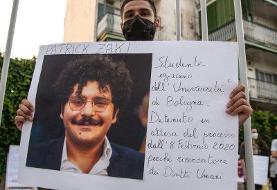 PATRICK ZAKI
Studente
egiziano
dell'Università
di Bologna.
Detenuto in
attesa del processo
dall'8 Febbraio 2020
perché ricercatore
dei Diritti Umani